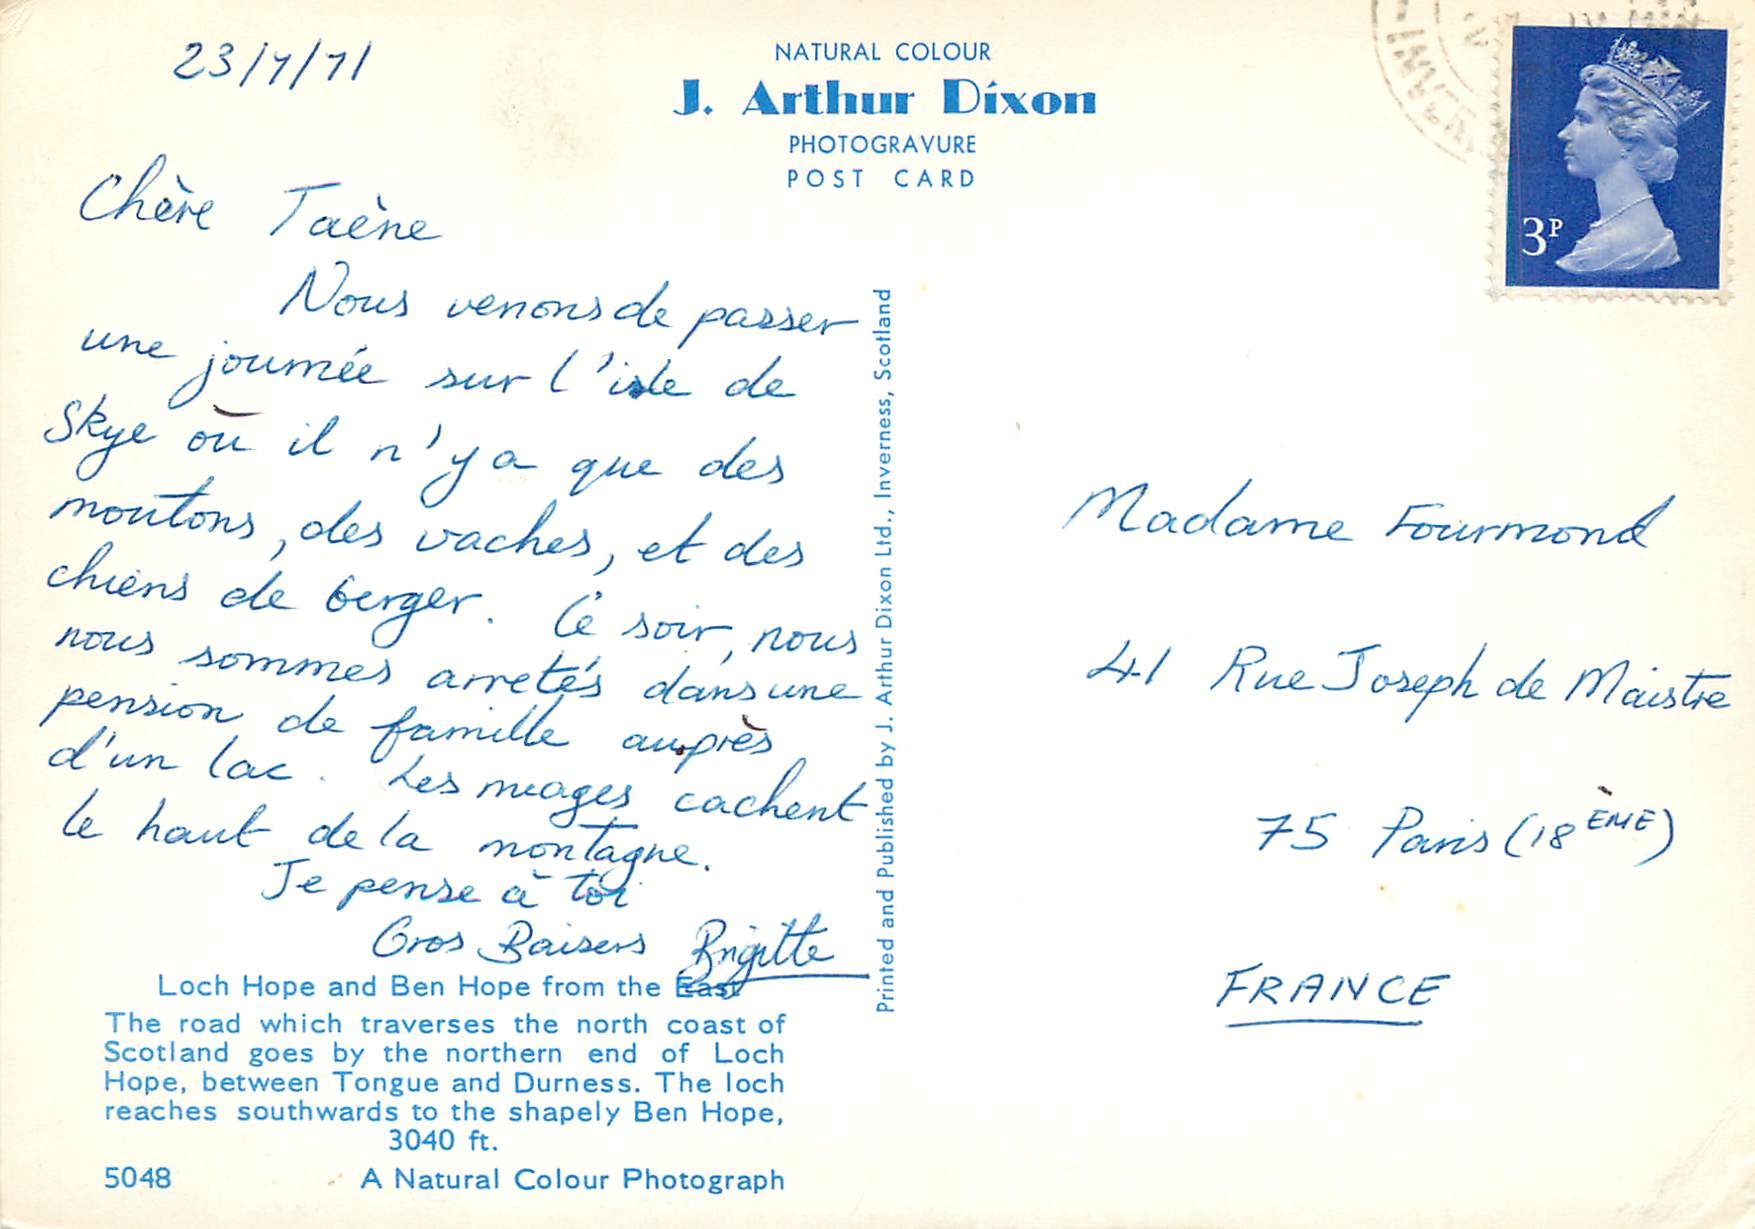 23/7/71
NATURAL COLOUR
J. Arthur Dixon
PHOTOGRAVURE
POST CARD
3P
Chère Taène
Nous venons de passer
une journée sur l'isle de
Skye où il n'y a que des
moutons, des vaches, et des
chiens de berger. Ce soir, nous
nous sommes arretés dans une
pension de famille auprès
d'un lac. Les nuages cachent
le haut de la montagne.
Je pense à toi
Gros Baisers Brigitte
Loch Hope and Ben Hope from the East
The road which traverses the north coast of
Scotland goes by the northern end of Loch
Hope, between Tongue and Durness. The loch
reaches southwards to the shapely Ben Hope,
3040 ft.
5048 A Natural Colour Photograph
Printed and Published by J. Arthur Dixon Ltd., Inverness, Scotland
Madame Fourmond
41 Rue Joseph de Maistre
75 Paris (18ÈME)
FRANCE